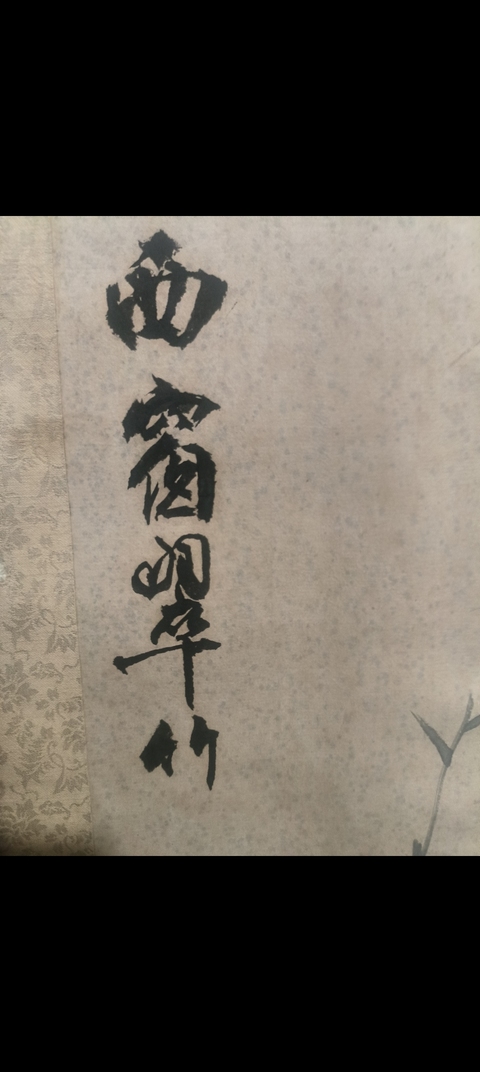 西窗翠竹